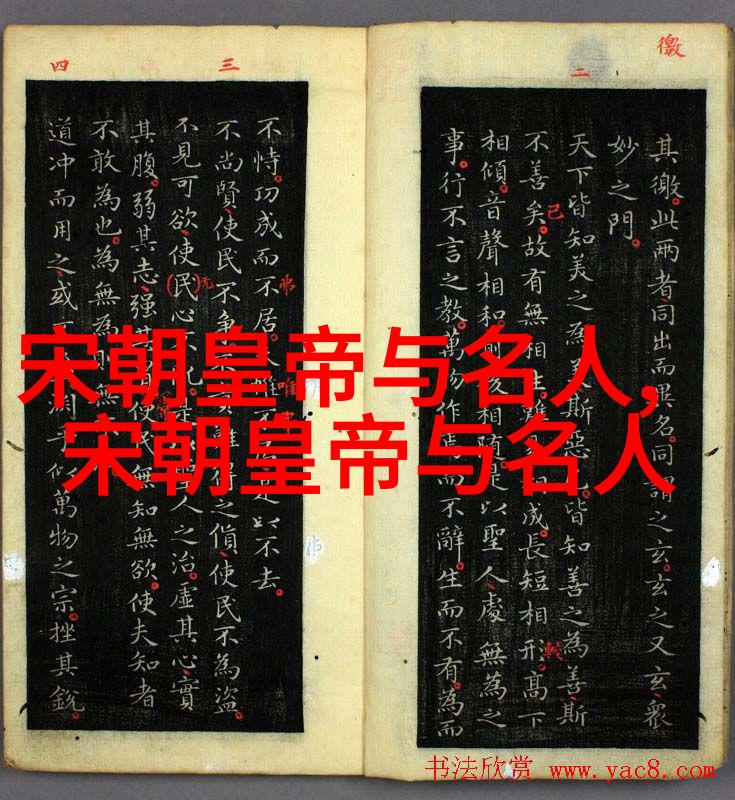 徼
二
其徼。此两者、同出而異名。同謂之玄。玄之又玄、眾
妙之門。
天下皆知美之為美斯惡已。皆知善之為善斯
不善矣。故有無相生。難易相成。長短相形。高下
相傾。音聲相和。前後相随。是以聖人處無為之
事。行不言之教。萬物作焉而不辭。生而不有。為而
已
較
三
四
不恃。功成而不居。惟不是以不去。
不尚賢、使民不争。不難得之貨、使民不為盜。
不見可欲、使(民)心不人之治。虛其心、實
其腹。弱其志、强其使民無知無欲。使夫知者
不敢為也。為無為則無
道冲而用之、或淵乎似萬物之宗。挫其銳
无
唯
宋朝皇帝与名人,
宋朝皇帝与名人
书法欣赏 www.yac8.com